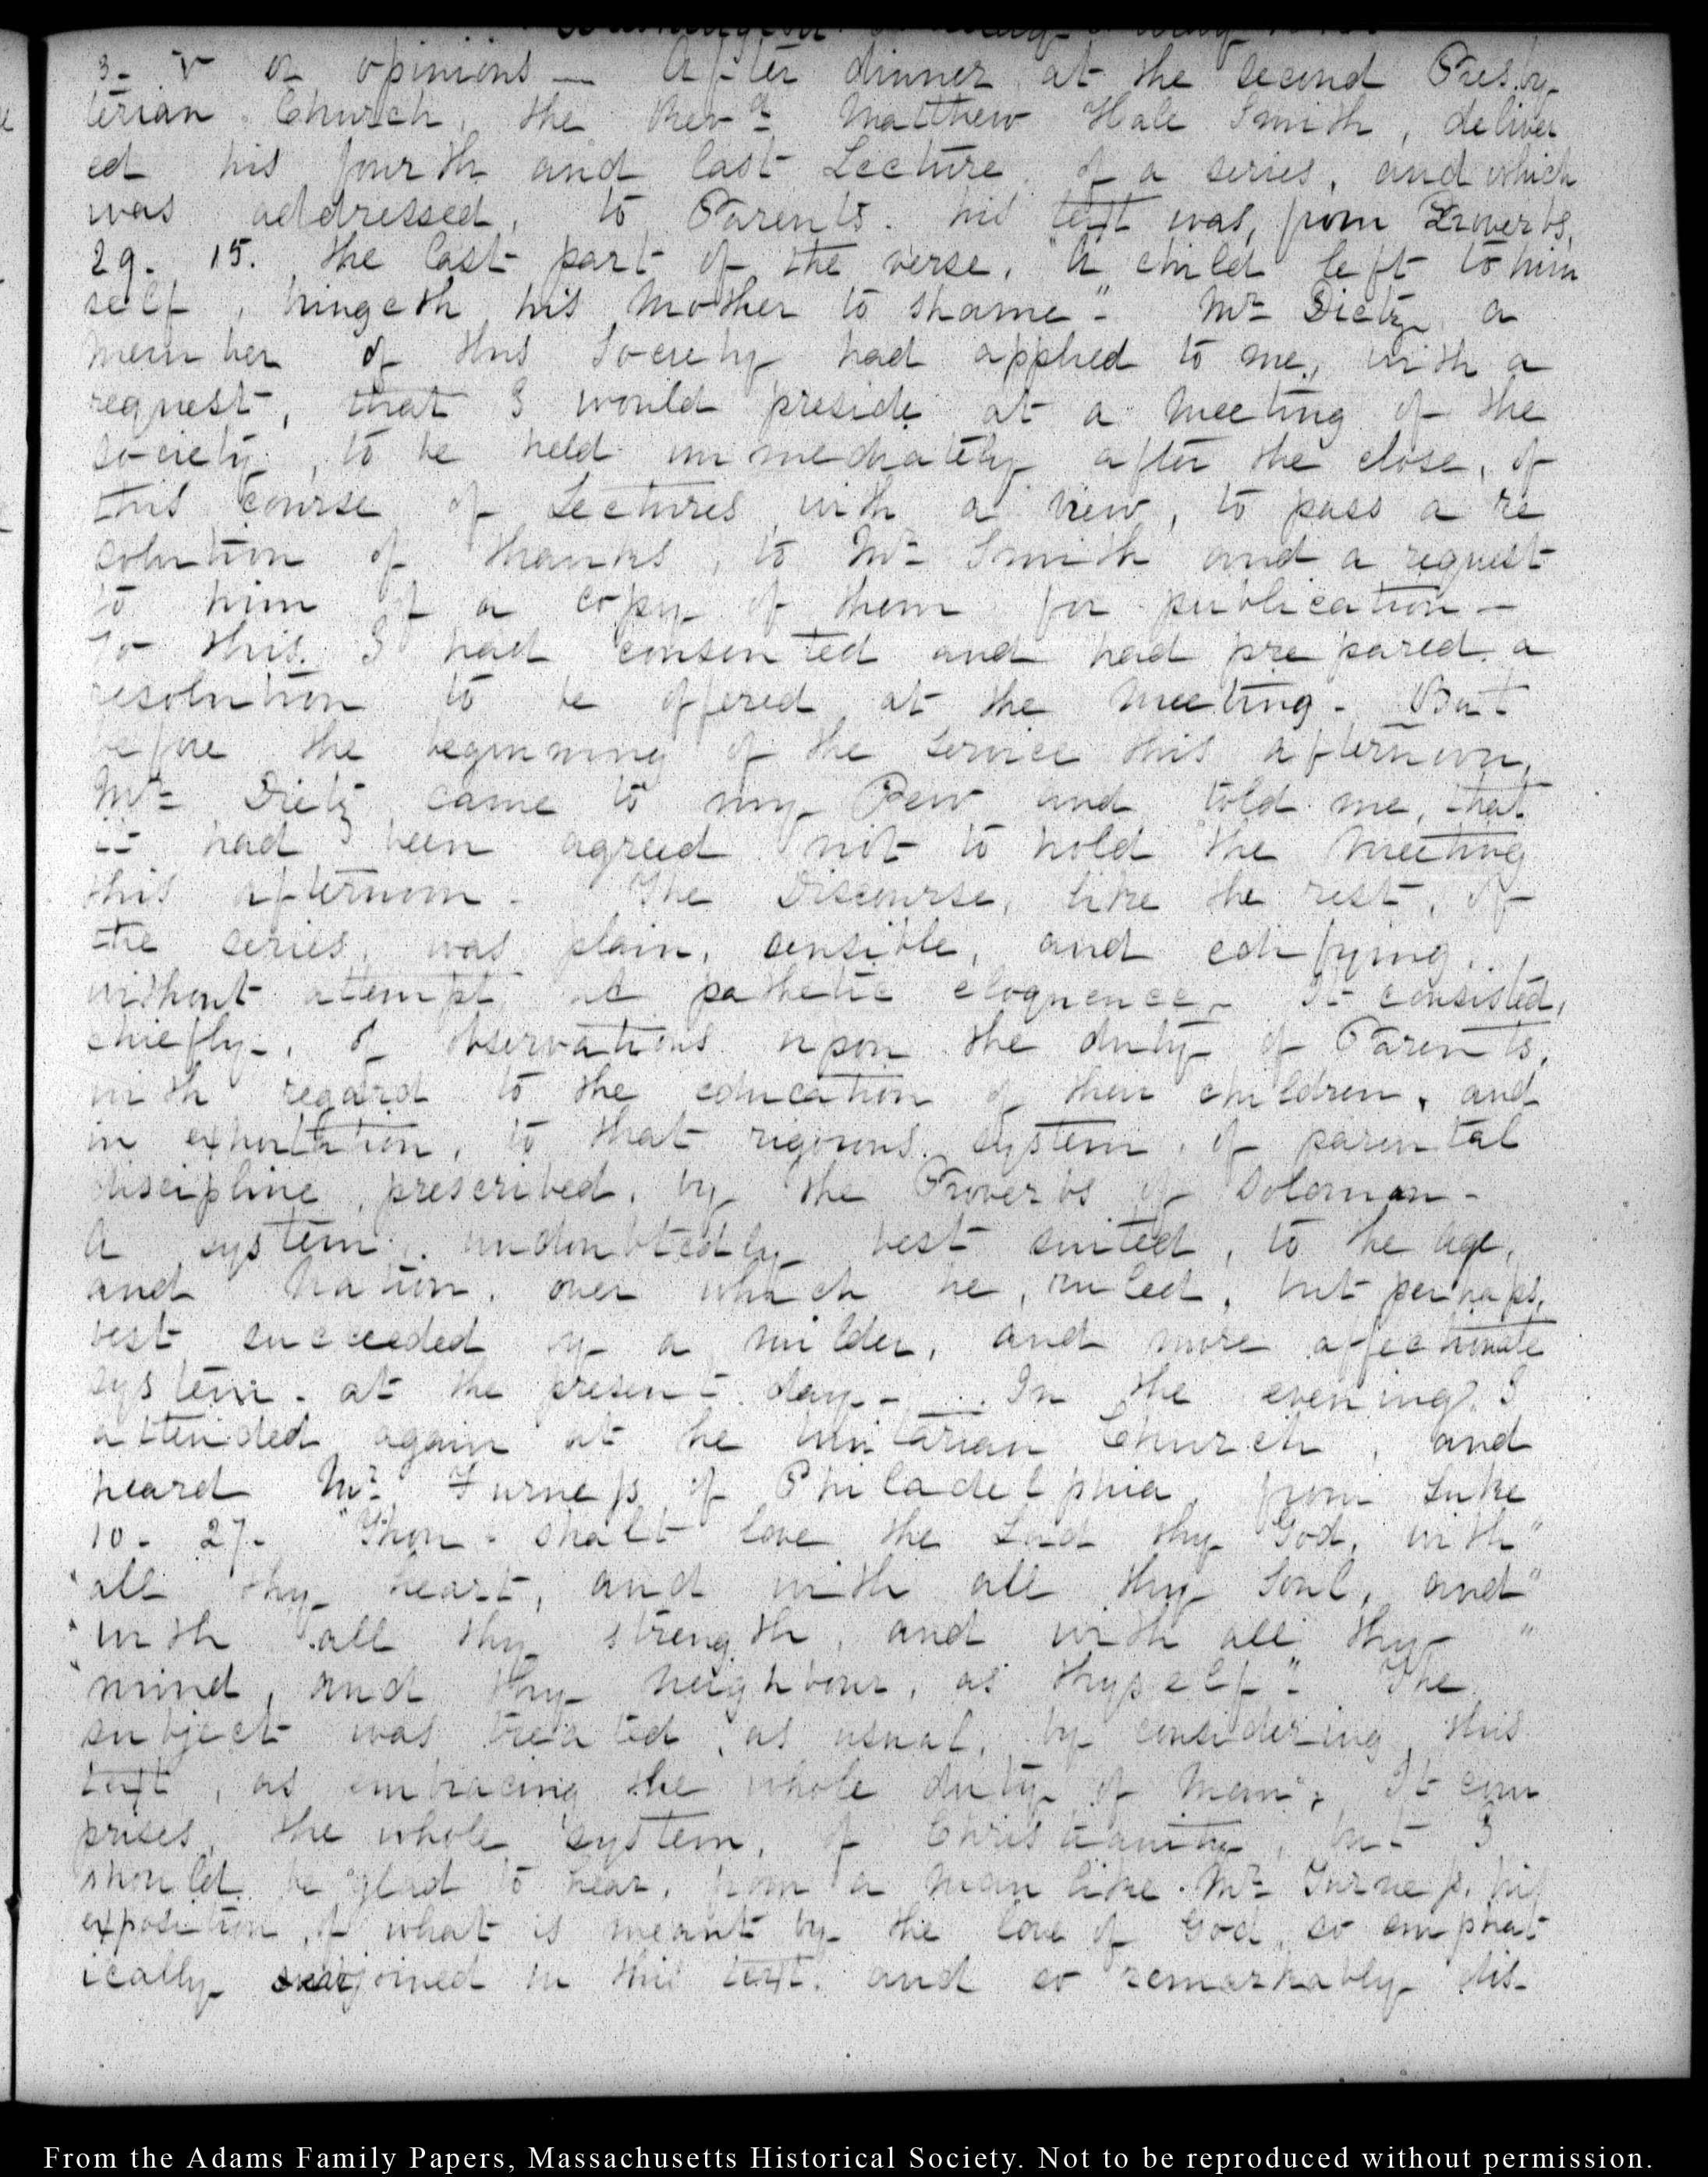 3. V or opinions — After dinner at the second Presby
terian Church, the Revd. Matthew Hale Smith, deliver
ed his fourth and last Lecture, of a series, and which
was addressed, to Parents. his text was, from Proverbs,
29. 15. the last part of the verse. "A child left to him
self, bringeth his Mother to shame". Mr. Dietz a
member of this Society had applied to me, with a
request, that I would preside at a meeting of the
society, to be held immediately after the close, of
this course of Lectures with a view, to pass a re
solution of thanks, to Mr. Smith and a request
to him of a copy of them for publication —
To this I had consented and had prepared a
resolution to be offered at the meeting. But
before the beginning of the service this afternoon,
Mr. Dietz came to my Pew and told me, that
it had been agreed not to hold the meeting
this afternoon. The Discourse, like the rest, of
the series, was plain, sensible, and edifying,
without attempt at pathetic eloquence. It consisted,
chiefly, of observations upon the duty of Parents,
with regard to the education of their children, and
in exhortation, to that rigorous system, of parental
discipline, prescribed, by the Proverbs of Solomon.
A system, undoubtedly best suited, to the age,
and Nation, over which he, ruled, but perhaps,
best succeeded by a milder, and more affectionate
system. at the present day. — In the evening I
attended again at the Unitarian Church, and
heard Mr. Furness of Philadelphia, from Luke
10. 27. "Thou shalt love the Lord thy God, with"
"all thy heart, and with all thy Soul, and"
"with all thy strength, and with all thy "
"mind, and thy neighbour, as thyself". The
subject was treated, as usual, by considering this
text, as embracing the whole duty of Man. It com
prises, the whole system, of Christianity, but I
should be glad to hear, from a man like Mr. Furness, his
exposition, of what is meant by the love of God, so emphat
ically enjoined in this text. and so remarkably dis-
From the Adams Family Papers, Massachusetts Historical Society. Not to be reproduced without permission.